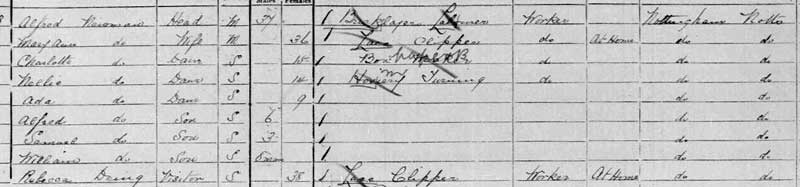 Males Females
8 Alfred Newman Head M 37 1 Bricklayer Labourer Worker Nottingham Notts
Mary Ann do Wife M 36 1 Lace Clipper do At Home do do
Charlotte do Daur S 15 1 Box do do do
Nellie do Daur S 14 1 Hosiery Turning do do do
Ada do Daur S 9 1 do do
Alfred do Son S 6 1 do do
Samuel do Son S 3 1 do do
William do Son S 1 do do
Rebecca Visitor S 38 1 Lace Clipper Worker At Home do do